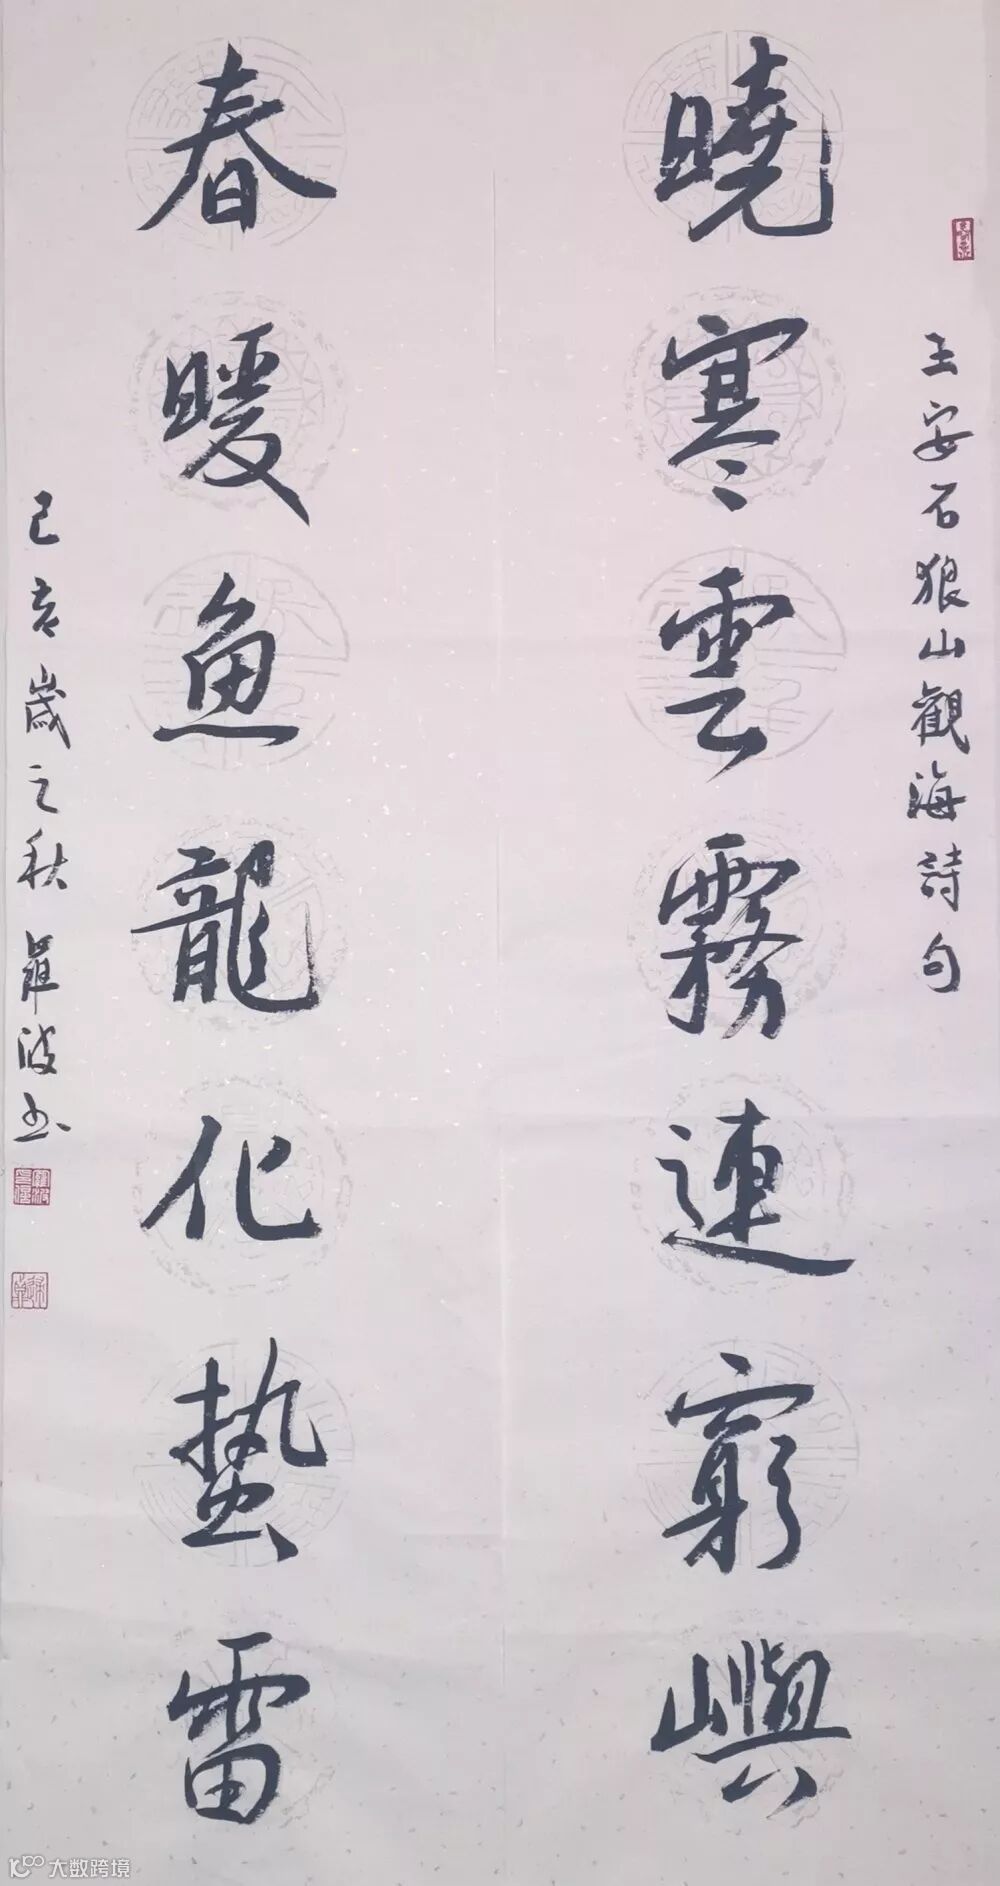 王安石狼山觀海詩句
曉寒雲霧連窮嶼
春暖魚龍化蟄雷
己亥歲之秋 羅波书
大数跨境